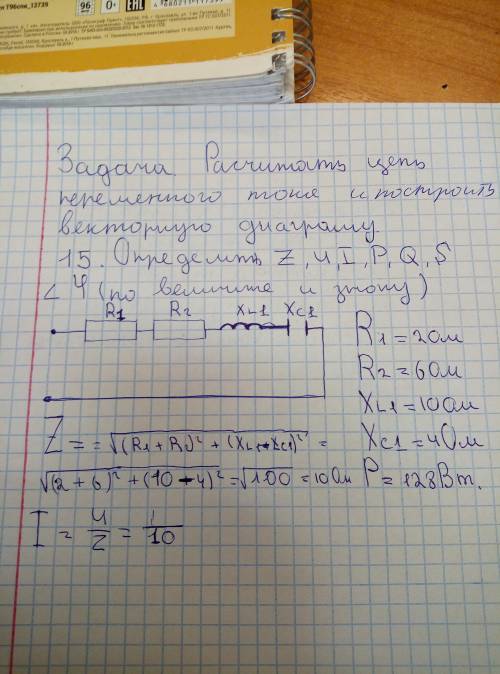 я Т96спк_13739
96
0+
EAC
Задача. Расчитать цепь
переменного тока и построить
векторную диаграму.
15. Определить Z, U, I, P, Q, S
∠ φ (по величите и знаку)
R1 R2 XL1 XC1
R1 = 2Ом
R2 = 6Ом
XL1 = 10Ом
XC1 = 4Ом
P = 128Вт.
Z = = √(R1 + R2)² + (XL1 - XC1)² =
√(2 + 6)² + (10 - 4)² = √100 = 10Ом
I = U/Z = 1/10